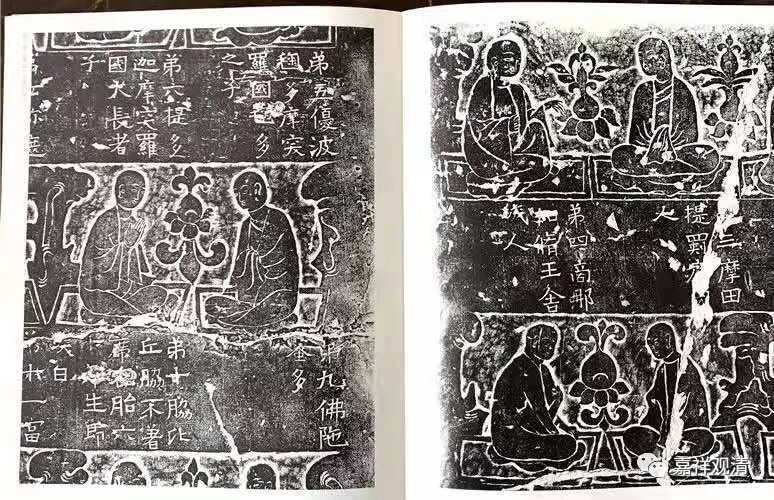 三摩田
提罽
人
第四商那
和脩王舍
人
第五優波
多摩突
羅國 多
之子
第六提多
迦摩突羅
國大長者
子
第七弥遮
第九佛陁
多
第十脇比
丘脇不著
席 胎六
生即
白
一富
嘉祥观清